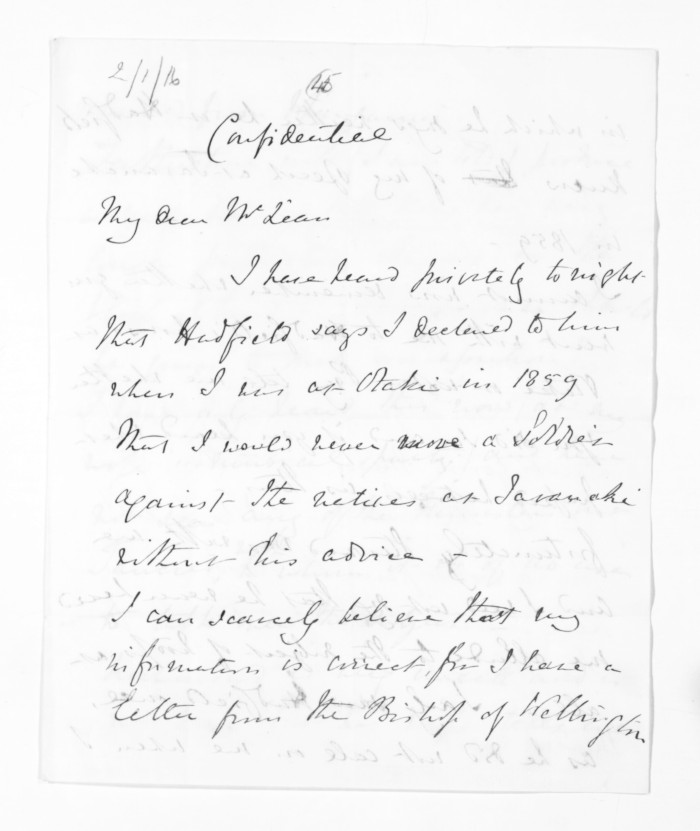 2/1/16
45
Confidential
My dear McLean
I have heard privately tonight
that Hadfield says I declared to him
when I was at Otaki in 1859
that I would never move a Soldier
against the natives at Taranaki
without his advice –
I can scarcely believe that my
information is correct, for I have a
letter from the Bishop of Wellington